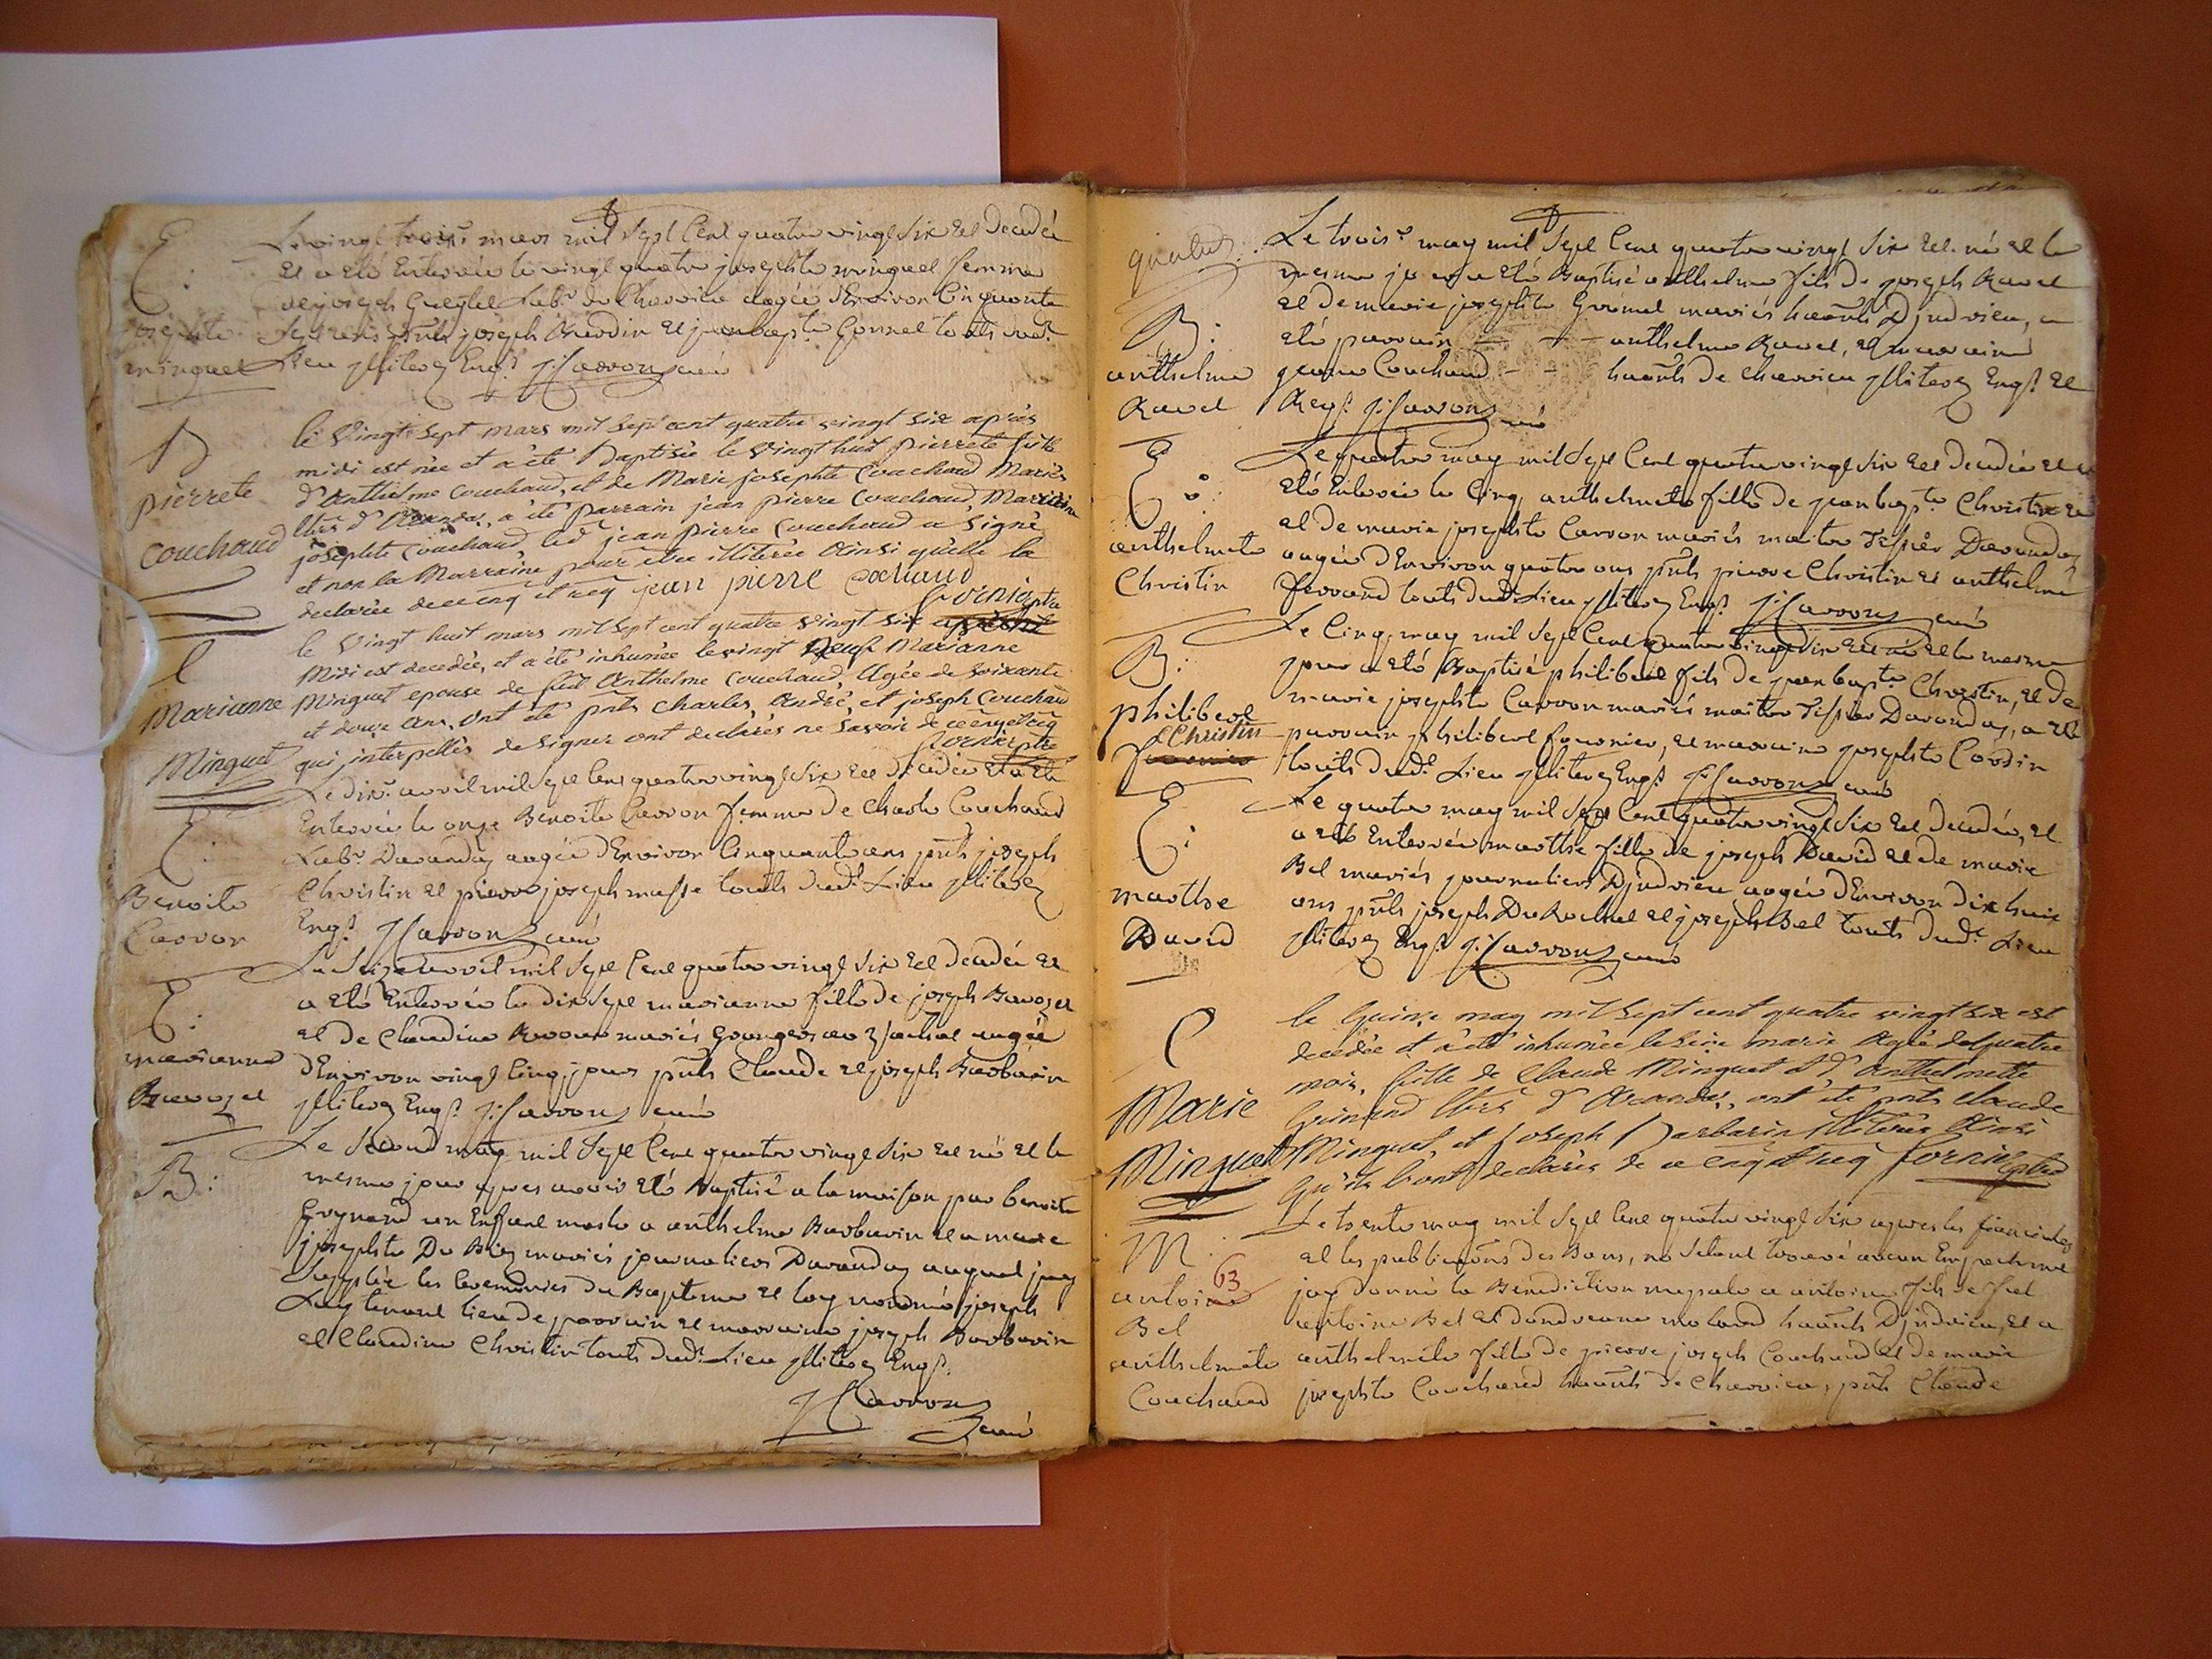 Le vingt trois.e mars mil sept cent quatre vingt six est decedée
et a eté enterrée le vingt quatre josephte minguet femme
de joseph lab.r de Charvieu aagée d'environ cinquante
sept ans pnts joseph et jean bapt.e touts dud.
lieu illiterez enq.s J: Carron curé
E:
josephte
minguet
le vingt sept mars mil sept cent quatre vingt six après
midi est née et a été baptisée le vingt huit pierrete fille
d'anthelme couchaud, et de Marie josephte Couchaud Mariés
d'Arandas, a été parrain jean pierre Couchaud, Marraine
josephte Couchaud led jean pierre Couchaud a signé
et non la Marraine pour être illiterée Ainsi qu'elle la
declarée de ce enq et req jean pierre cochaud
fornier ptre
B
pierrete
couchaud
le vingt huit mars mil sept cent quatre vingt six
Midi est decedée, et a été inhumée le vingt neuf Marianne
Minguet epouse de feu Anthelme Couchaud, Agée de soixante
et douze ans, ont été pnts charles, André, et joseph Couchaud
qui interpellés de signer ont declarés ne savoir de ce enq et req
fornier ptre
E
Marianne
Minguet
Le dix.e avril mil sept cent quatre vingt six est decedée et a eté
enterrée le onze Benoite Carron femme de Charle Couchaud
lab.r Darandaz aagée d'environ cinquante ans pnts joseph
Christin et pierre joseph masse touts dud. lieu illiterez
enq.s J: Carron curé
E:
Benoite
Carron
Le seize avril mil sept cent quatre vingt six est decedée et
a eté enterrée le dix sept marianne fille de joseph Bavozet
et de Claudine mariés grangers au aagée
d'environ vingt cinq jours pnts Claude et joseph Barbarin
illiterez enq.s J: Carron curé
E:
marianne
Bavozet
Le second may mil sept cent quatre vingt six est né et le
mesme jour apres avoir eté baptisé a la maison par benoite
guynard un enfant masle a anthelme Barbarin et a marie
josephte Du mariés journaliers Darandaz auquel jay
supplée les ceremonies du Bapteme et lay nommé joseph
luy tenant lieu de parrain et marraine joseph Barbarin
et Claudine Christin touts dud. lieu illiterez enq.s
J: Carron
curé
B:
Le trois.e may mil sept cent quatre vingt six est né et le
mesme jour a eté Baptisé anthelme fils de joseph Ravel
et de marie josephte mariés Djndrieu, a
eté parrain anthelme Ravel, et marraine
Couchaud de Charvieu illiterez enq.s et
Req.s J: Carron curé
B:
anthelme
Ravel
Le quatre may mil sept cent quatre vingt six est decedée et a
eté enterrée le cinq anthelmete fille de jean bapt.e Christin
et de marie josephte Carron mariés maitre Tissier Darandaz
aagée d'environ quatre ans pnts pierre Christin et anthelme
ferrand touts dud. lieu illiterez enq.s J: Carron curé
E:
anthelmete
Christin
Le cinq may mil sept cent quatre vingt six est né et le mesme
jour a eté Baptisé philibert fils de jean bapt.e Christin, et de
marie josephte Carron mariés maitre Tissier Darandaz, a eté
parrain philibert fournier, et marraine josephte Cordin
touts dud. lieu illiterez enq.s J: Carron curé
B:
philibert
Christin
Le quatre may mil sept cent quatre vingt six est decedée, et
a eté enterrée marthe fille de joseph David et de marie
Bel mariés journaliers Djndrieu aagée d'environ dix huit
ans pnts joseph Du Rochat et joseph Bel touts dud. lieu
illiterez enq.s J: Carron curé
E:
marthe
David
le quinze may mil sept cent quatre vingt six est
decedée et a été inhumée le seize marie Agée de quatre
mois, fille de Claude Minguet et d'anthelmette
guinand d'Arandas, ont été pnts claude
Minguet, et joseph Barbarin illiterés Ainsi
qu'ils l'ont declarés de ce enq et req fornier ptre
E
Marie
Minguet
Le trente may mil sept cent quatre vingt six apres les fiancailles
et les publications des Bans, ne setant trouvé aucun empechement
jay donné la Benediction nuptiale a antoine fils de feu
antoine Bel et dandreane molard Djndrieu, et a
anthelmete fille de pierre joseph Couchaud et de marie
josephte Couchaud de Charvieu, pnts Claude
M.
63
antoine
Bel
anthelmete
Couchaud